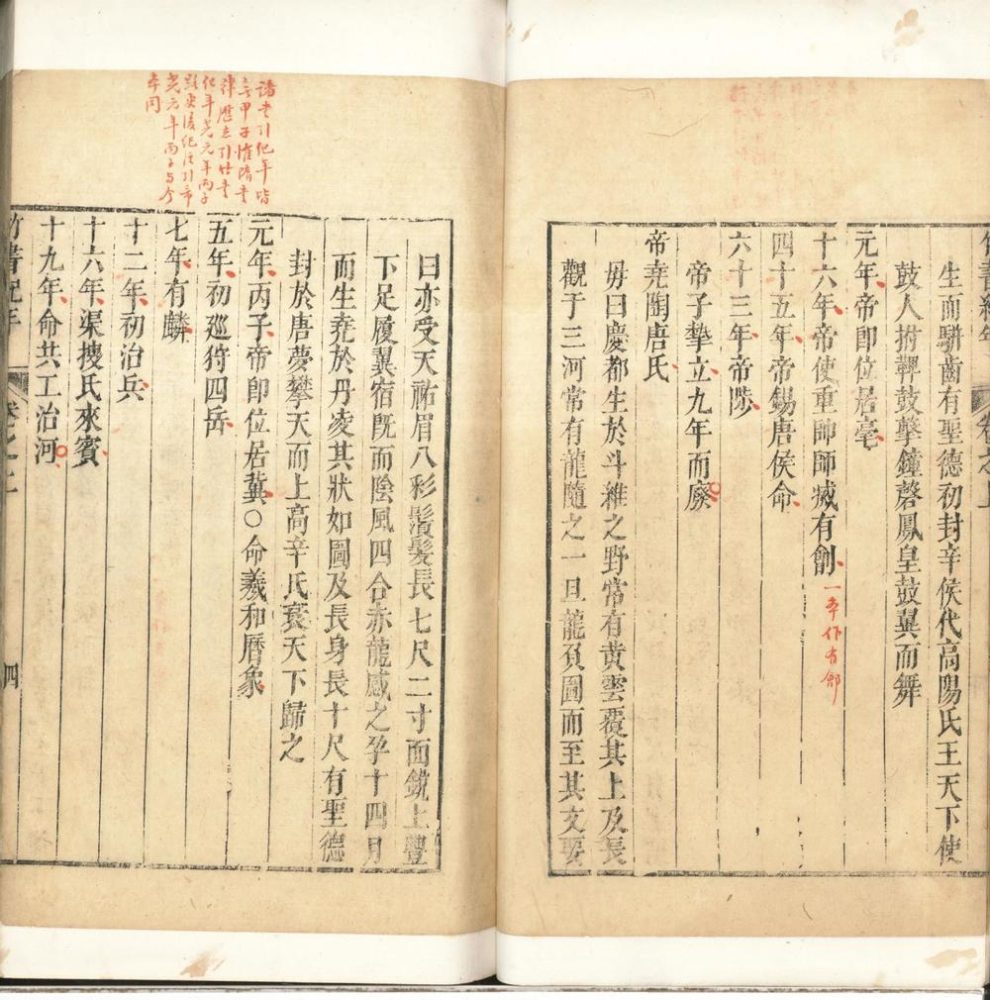 竹書紀年 卷之上
生而騈齒有聖德初封辛侯代高陽氏王天下使
鼓人拊鞞鼓擊鐘磬鳳皇鼓翼而舞
元年帝即位居亳
十六年帝使重帥師滅有劊
一本作有鄶
四十五年帝錫唐侯命
六十三年帝陟
帝子摯立九年而廢
帝堯陶唐氏
毋曰慶都生於斗維之野常有黄雲覆其上及長
觀于三河常有龍隨之一旦龍負圖而至其文要
諸書引紀年皆
無甲子惟隋書
律歷志引竹書
紀年堯元年丙子
路史後紀注引帝
堯元年丙子與今
本同
曰亦受天祐眉八彩鬚髮長七尺二寸面銳上豐
下足履翼宿旣而陰風四合赤龍感之孕十四月
而生堯於丹凌其狀如圖及長身長十尺有聖德
封於唐夢攀天而上高辛氏衰天下歸之
元年丙子帝即位居冀○命羲和曆象
五年初巡狩四岳
七年有麟
十二年初治兵
十六年渠搜氏來賓
十九年命共工治河
竹書紀年 卷之上 四